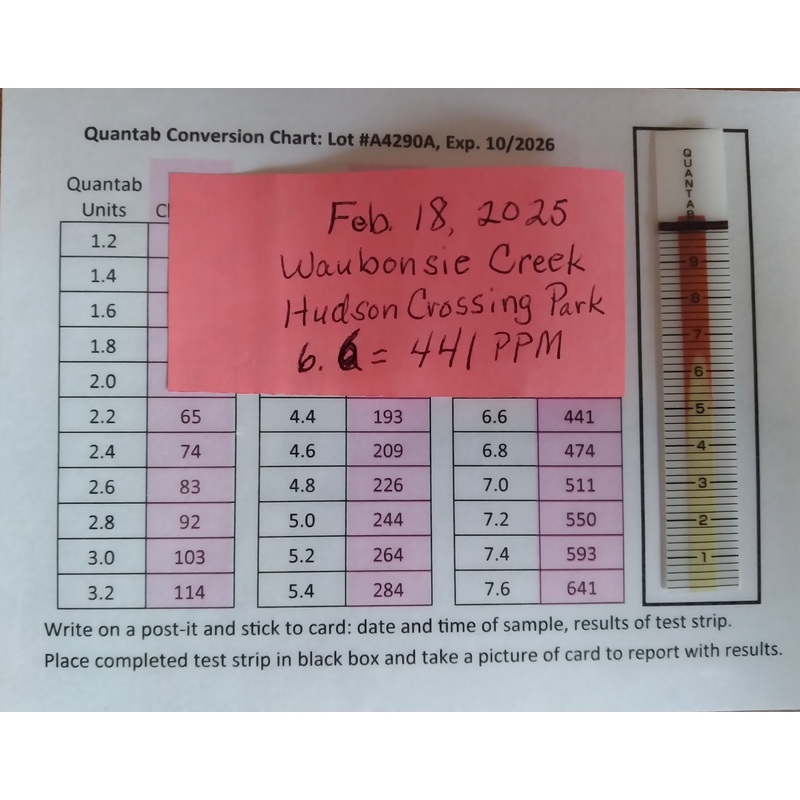 Quantab Conversion Chart: Lot #A4290A, Exp. 10/2026
Quantab
Units
Feb. 18, 2025
Waubonsie Creek
Hudson Crossing Park
6.6 = 441 PPM
1.2
1.4
1.6
1.8
2.0
2.2 65 4.4 193 6.6 441
2.4 74 4.6 209 6.8 474
2.6 83 4.8 226 7.0 511
2.8 92 5.0 244 7.2 550
3.0 103 5.2 264 7.4 593
3.2 114 5.4 284 7.6 641
QUANTAB
9
8
7
6
5
4
3
2
1
Write on a post-it and stick to card: date and time of sample, results of test strip.
Place completed test strip in black box and take a picture of card to report with results.